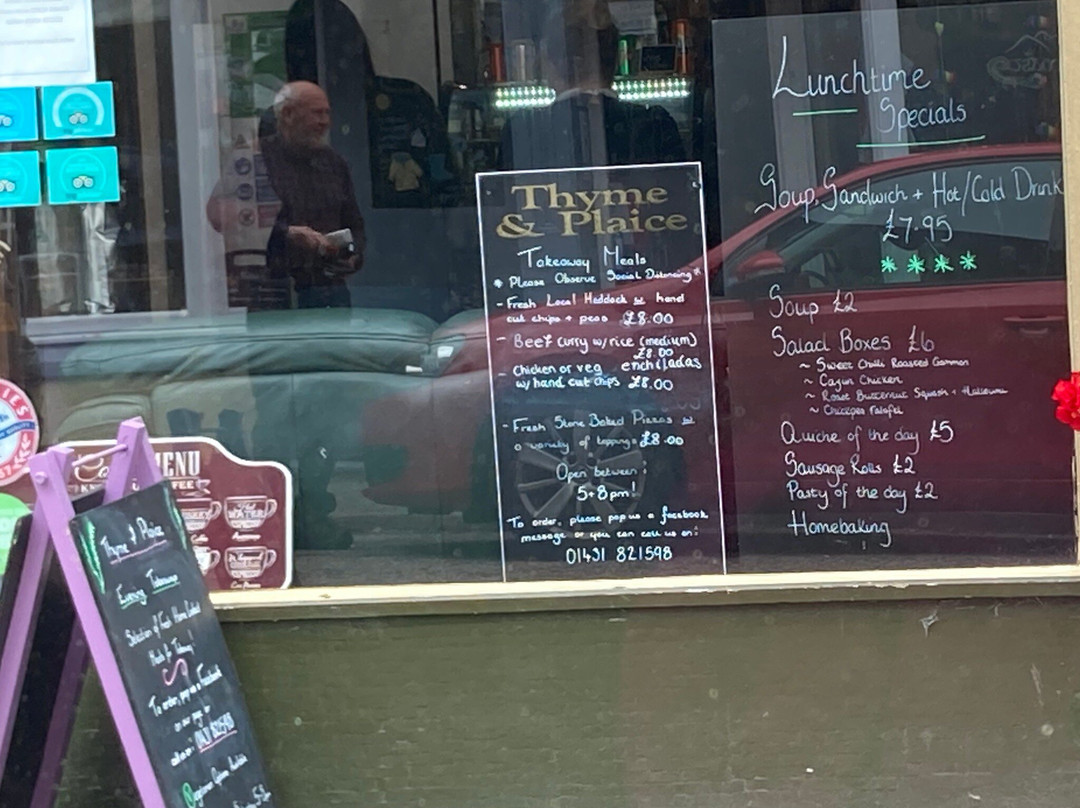 Thyme
& Plaice
Takeaway Meals
* Please Observe Social Distancing *
- Fresh Local Haddock w hand
cut chips + peas £8.00
- Beef curry w/rice (medium)
£8.00
- Chicken or veg enchiladas
w/ hand cut chips £8.00
- Fresh Stone Baked Pizzas w
a variety of toppings £8.00
Open between:
5-8pm!
To order, please pop us a facebook
message or you can call us on:
01431 821598
Lunchtime
Specials
Soup, Sandwich + Hot/Cold Drink
£7.95
Soup £2
Salad Boxes £6
~ Sweet Chilli Roasted Gammon
~ Cajun Chicken
~ Roast Butternut Squash + Halloumi
~ Chickpea Falafel
Quiche of the day £5
Sausage Rolls £2
Pasty of the day £2
Homebaking
MENU
Thyme & Plaice
Evening Takeaway
Selection of Fresh Home Cooked
Meals for Takeaway!
To order, pop us a Facebook
on our page or
call us on: 01431 821598
Vegetarian Options Available